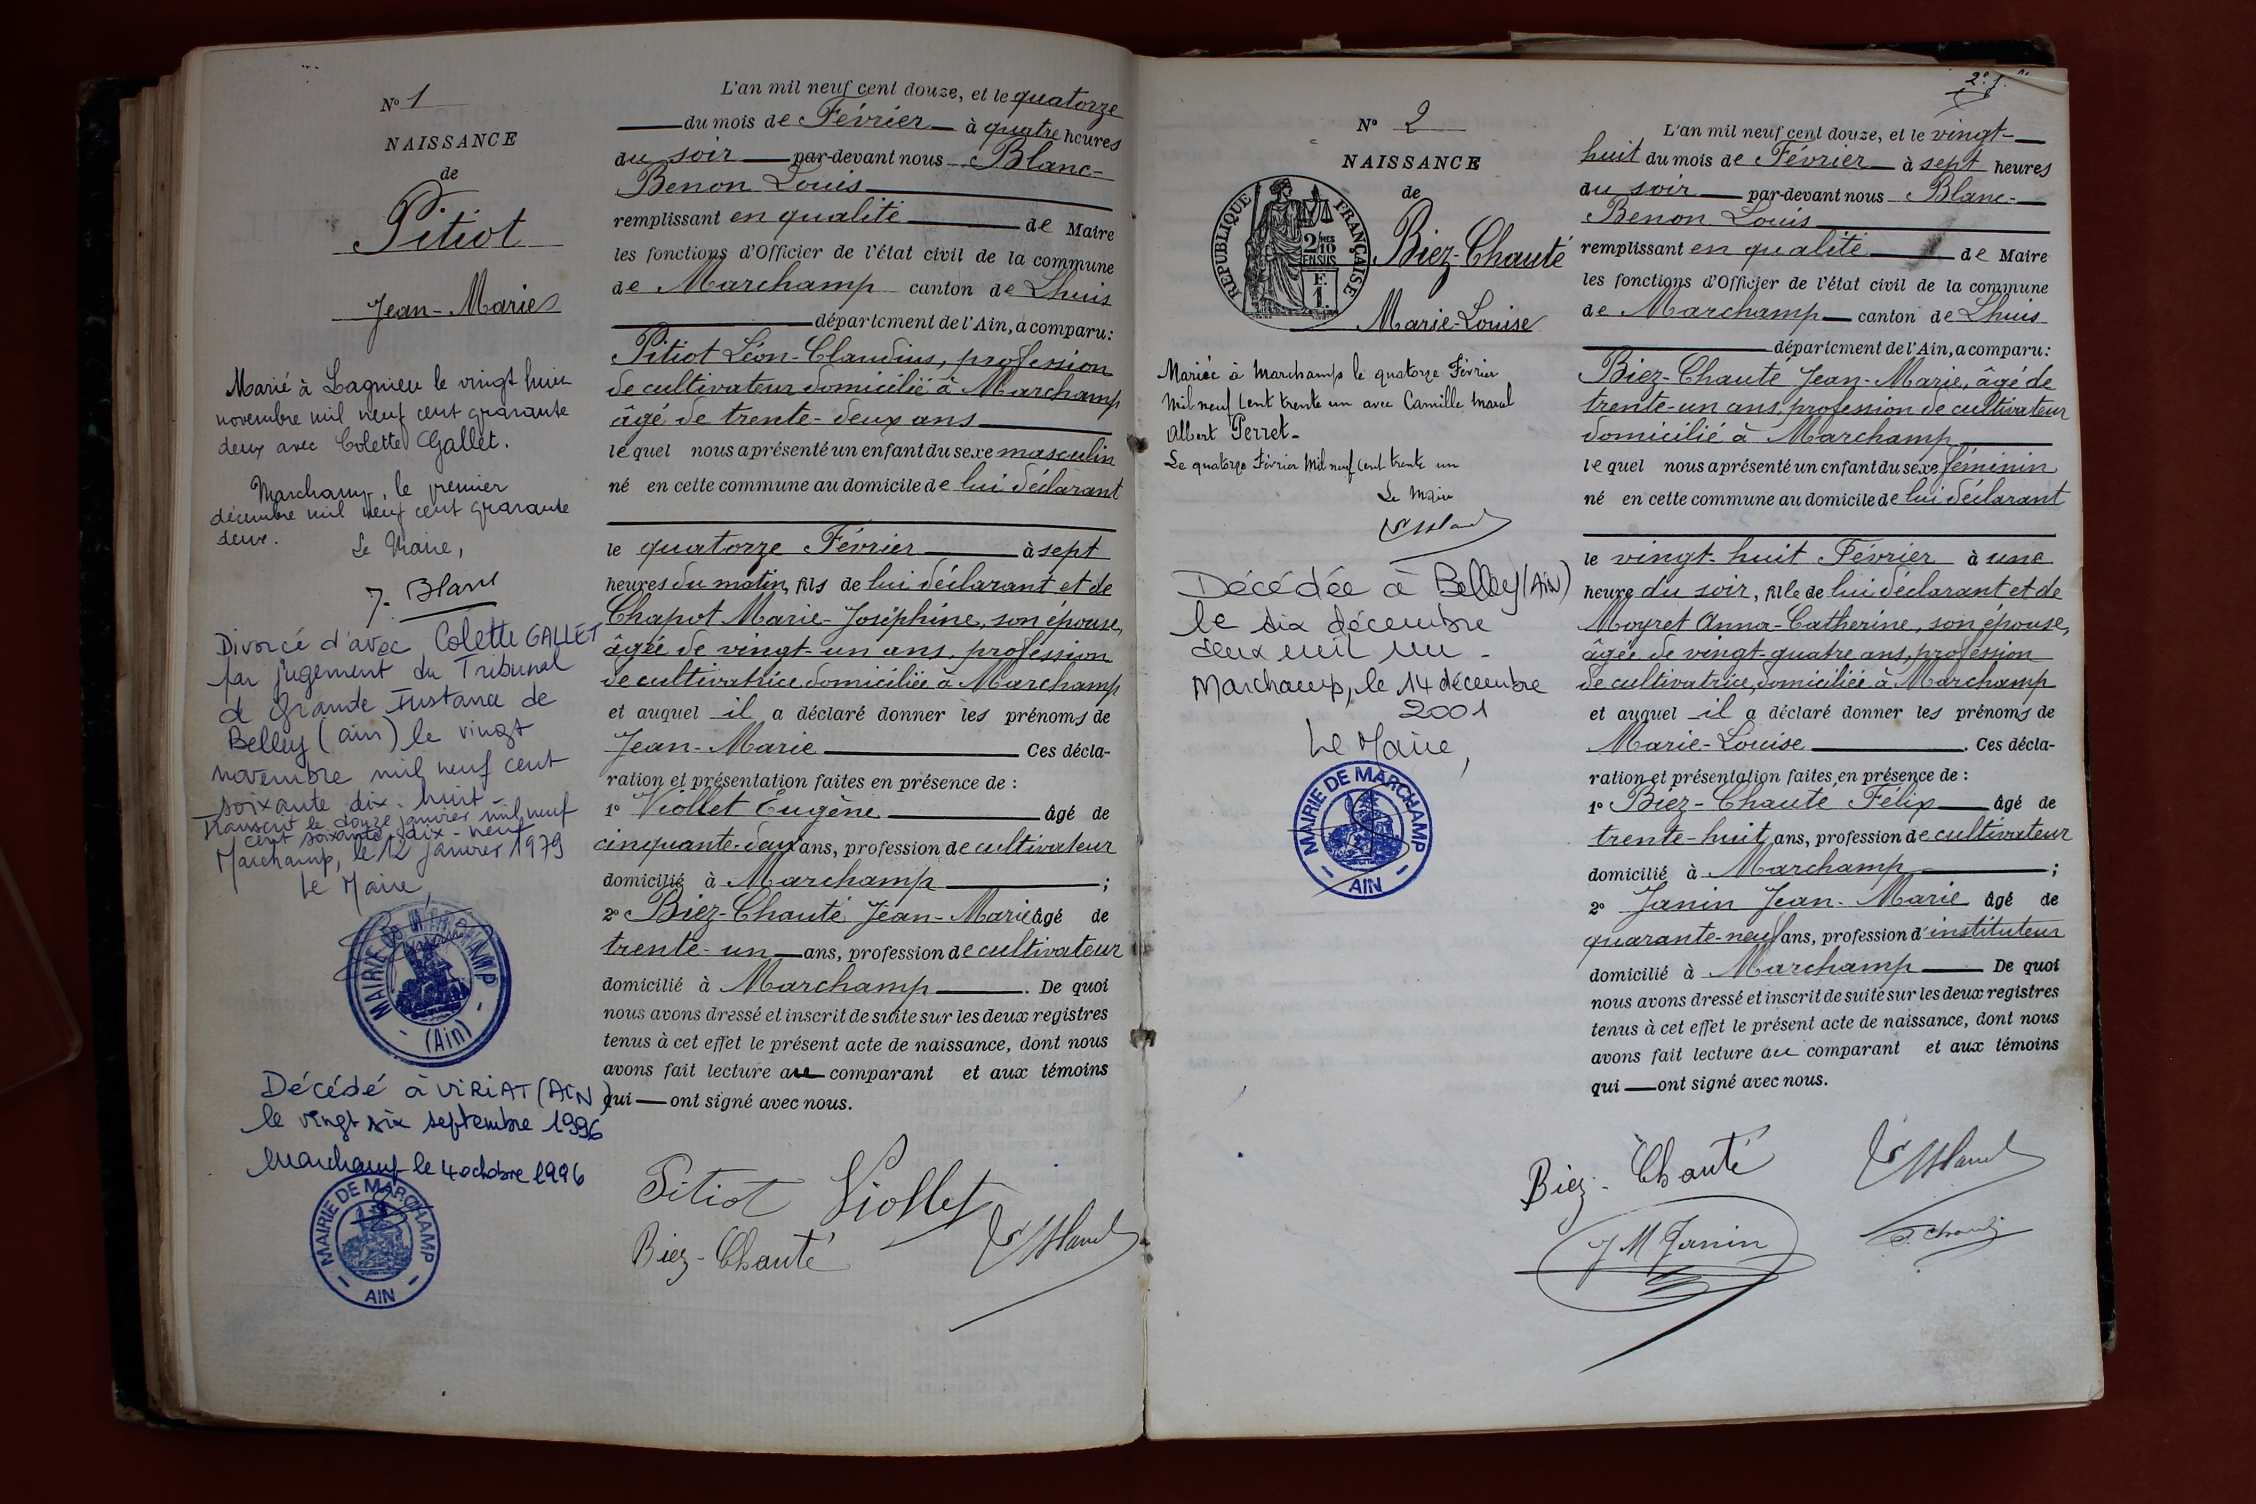 N° 1
NAISSANCE
de
Pitiot
Jean-Marie
Marié à Lagnieu le vingt huit
novembre mil neuf cent quarante
deux avec Colette Gallet.
Marchamp, le premier
décembre mil neuf cent quarante
deux.
Le Maire,
J. Blanc
Divorcé d'avec Colette GALLET
par jugement du Tribunal
de Grande Instance de
Belley (ain) le vingt
novembre mil neuf cent
soixante dix-huit-
Transcrit le douze janvier mil neuf
cent soixante dix-neuf
Marchamp, le 12 janvier 1979
Le Maire,
MAIRIE DE MARCHAMP
(Ain)
Décédé à VIRIAT (AIN)
le vingt six septembre 1996
Marchamp le 4 octobre 1996
MAIRIE DE MARCHAMP
AIN
L'an mil neuf cent douze, et le quatorze
du mois de Février à quatre heures
du soir par-devant nous Blanc-
Benon Louis
remplissant en qualité de Maire
les fonctions d'Officier de l'état civil de la commune
de Marchamp canton de Lhuis
département de l'Ain, a comparu:
Pitiot Léon-Claudius, profession
de cultivateur domicilié à Marchamp
âgé de trente-deux ans
lequel nous a présenté un enfant du sexe masculin
né en cette commune au domicile de lui déclarant
le quatorze Février à sept
heures du matin, fils de lui déclarant et de
Chapot Marie-Joséphine, son épouse,
âgée de vingt-un ans, profession
de cultivatrice domiciliée à Marchamp
et auquel il a déclaré donner les prénoms de
Jean-Marie Ces décla-
ration et présentation faites en présence de :
1° Viollet Eugène âgé de
cinquante-deux ans, profession de cultivateur
domicilié à Marchamp ;
2° Biez-Chauté Jean-Marie âgé de
trente-un ans, profession de cultivateur
domicilié à Marchamp . De quoi
nous avons dressé et inscrit de suite sur les deux registres
tenus à cet effet le présent acte de naissance, dont nous
avons fait lecture au comparant et aux témoins
qui ont signé avec nous.
Pitiot Viollet
Biez-Chauté Ls Blanc
N° 2
NAISSANCE
de
RÉPUBLIQUE FRANÇAISE
2/10MES
EN SUS
F.
1.
Biez-Chauté
Marie-Louise
Mariée à Marchamp le quatorze Février
Mil neuf Cent trente un avec Camille Marcel
Albert Perret-
Le quatorze Février Mil neuf Cent trente un
Le Maire
Ls Blanc
Décédée à Belley (AIN)
le dix décembre
deux mil un-
Marchamp, le 14 décembre
2001
Le Maire,
MAIRIE DE MARCHAMP
AIN
L'an mil neuf cent douze, et le vingt-
huit du mois de Février à sept heures
du soir par-devant nous Blanc-
Benon Louis
remplissant en qualité de Maire
les fonctions d'Officier de l'état civil de la commune
de Marchamp canton de Lhuis
département de l'Ain, a comparu:
Biez-Chauté Jean-Marie, âgé de
trente-un ans, profession de cultivateur
domicilié à Marchamp
lequel nous a présenté un enfant du sexe féminin
né en cette commune au domicile de lui déclarant
le vingt-huit Février à une
heure du soir, fille de lui déclarant et de
Moyret Anna-Catherine, son épouse,
âgée de vingt-quatre ans, profession
de cultivatrice, domiciliée à Marchamp
et auquel il a déclaré donner les prénoms de
Marie-Louise . Ces décla-
ration et présentation faites en présence de :
1° Biez-Chauté Félix âgé de
trente-huit ans, profession de cultivateur
domicilié à Marchamp ;
2° Janin Jean-Marie âgé de
quarante-neuf ans, profession d'instituteur
domicilié à Marchamp De quoi
nous avons dressé et inscrit de suite sur les deux registres
tenus à cet effet le présent acte de naissance, dont nous
avons fait lecture au comparant et aux témoins
qui ont signé avec nous.
Biez-Chauté Ls Blanc
J M Janin